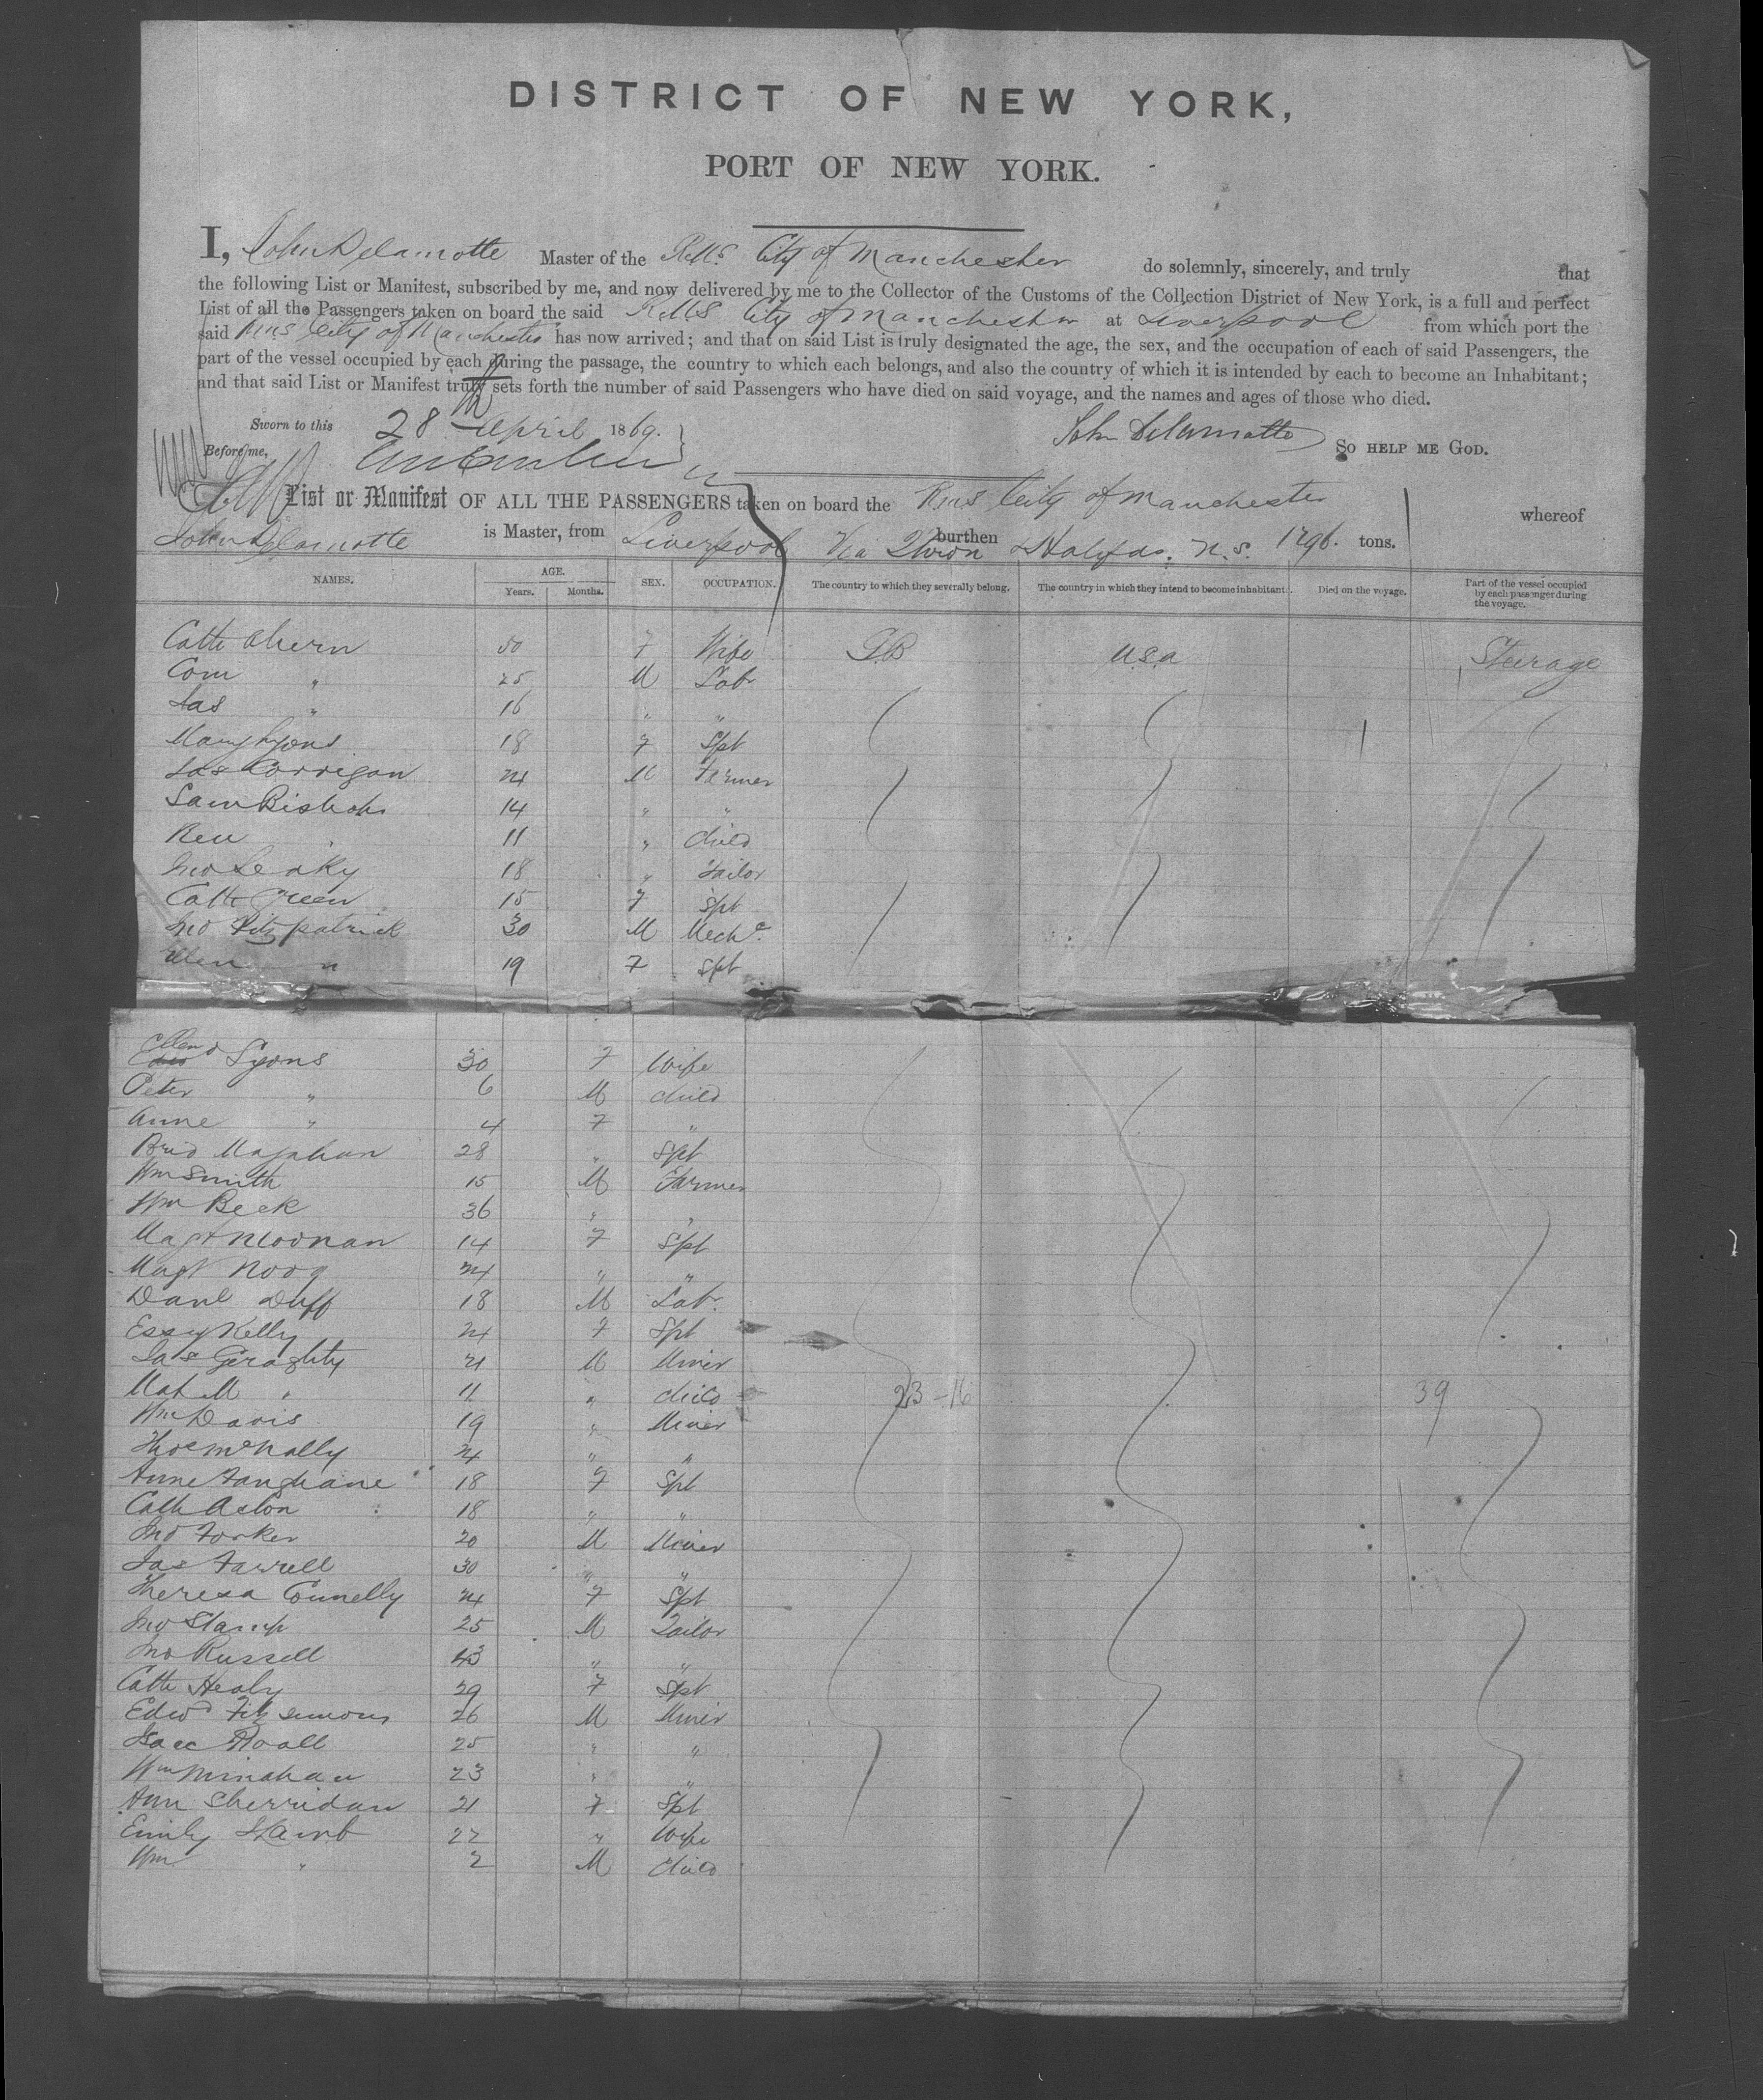 DISTRICT OF NEW YORK,
PORT OF NEW YORK.
I, John Delamotte Master of the RMS City of Manchester do solemnly, sincerely, and truly that
the following List or Manifest, subscribed by me, and now delivered by me to the Collector of the Customs of the Collection District of New York, is a full and perfect
List of all the Passengers taken on board the said RMS City of Manchester at Liverpool from which port the
said RMS City of Manchester has now arrived; and that on said List is truly designated the age, the sex, and the occupation of each of said Passengers, the
part of the vessel occupied by each during the passage, the country to which each belongs, and also the country of which it is intended by each to become an Inhabitant;
and that said List or Manifest truly sets forth the number of said Passengers who have died on said voyage, and the names and ages of those who died.
Sworn to this 28th April 1869. John Delamotte So help me God.
Before me,
List or Manifest OF ALL THE PASSENGERS taken on board the RMS City of Manchester whereof
John Delamotte is Master, from Liverpool Via & Halifax, N.S. burthen 1296. tons.
NAMES. AGE. Years. Months. SEX. OCCUPATION. The country to which they severally belong. The country in which they intend to become inhabitant. Died on the voyage. Part of the vessel occupied by each passenger during the voyage.
Cath Ahern 50 F Wife GB USA Steerage
Corn " 25 M Labr
Jas " 16 " "
Mary Lyons 18 F Spt
Jas Corrigan 24 M Farmer
Sam Bishop 14 " "
11 " Child
Jno Leaky 18 " Tailor
Cath Green 15 F Spt
Jno Fitzpatrick 30 M Mechc
Ellen " 19 F Spt
Ellen Lyons 30 F Wife
Peter " 6 M Child
Anne " 4 F "
Brid Magahan 28 " Spt
Wm Smith 15 M Farmer
Wm Beck 36 " "
Magt Moonan 14 F Spt
Magt 24 " "
Danl Duff 18 M Labr.
Essy Kelly 24 F Spt
Jas Geraghty 21 M Miner
Mat M " 11 " Child 23-16 39
Wm Davis 19 " Miner
Thos McNally 24 " "
Anne 18 F Spt
Cath Acton 18 " "
Jno Forker 20 M Miner
Jas Farrell 30 " "
Theresa Connelly 24 F Spt
Jno Stamp 25 M Tailor
Jno Russell 43 " "
Cath Healy 29 F Spt
Edwd Fitzsimons 26 M Miner
Isaac 25 " "
Wm Minahan 23 " "
Ann Sherridan 21 F Spt
Emily 22 " Wife
Wm " 2 M Child